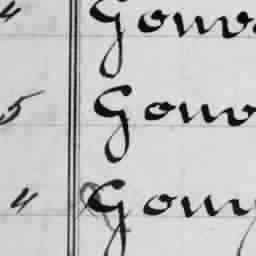 " Gouv
5 Gouv
" Gouy